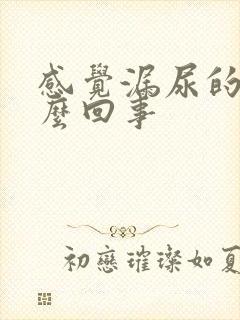 感覺漏尿的
麼回事
初戀璀璨如夏